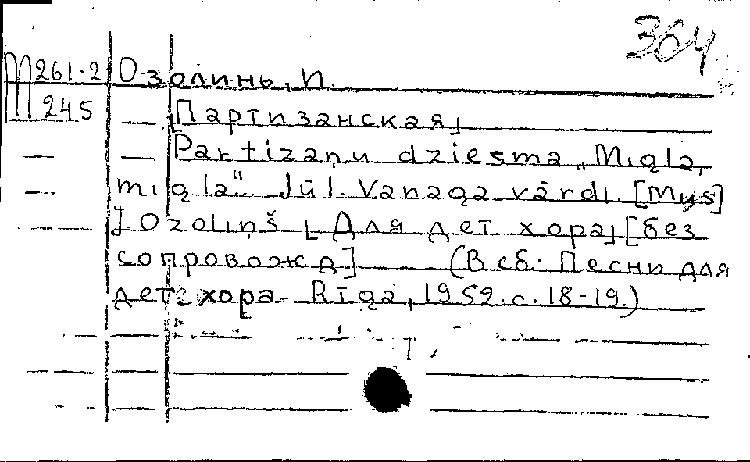 364
М 261-2 Озолинь, И.
М 245 — [Партизанская]
— — Partizaņu dziesma „Migla,
— migla" Jūl. Vanaga vārdi. [Mys]
— J Ozoliņš [Для дет хора] [без
сопровожд] — (В сб. Песни для
дет. хора. Rīga, 1959. с. 18-19.)